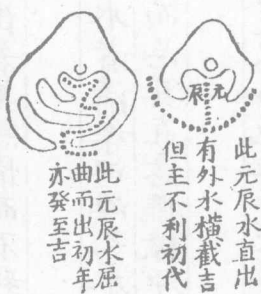 元辰
此元辰水直出
有外水橫截吉
但主不利初代
此元辰水屈
曲而出初年
亦發至吉